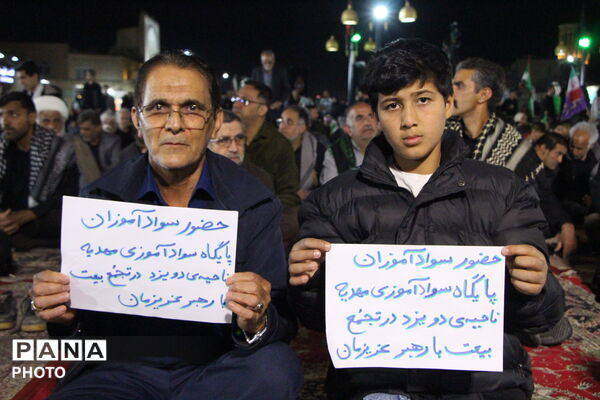 حضور سوادآموزان
پایگاه سوادآموزی مهدیه
ناحیه‌ی دو یزد در تجمع بیعت
با رهبر عزیزمان
حضور سوادآموزان
پایگاه سوادآموزی مهدیه
ناحیه‌ی دو یزد در تجمع
بیعت با رهبر عزیزمان
PANA
PHOTO